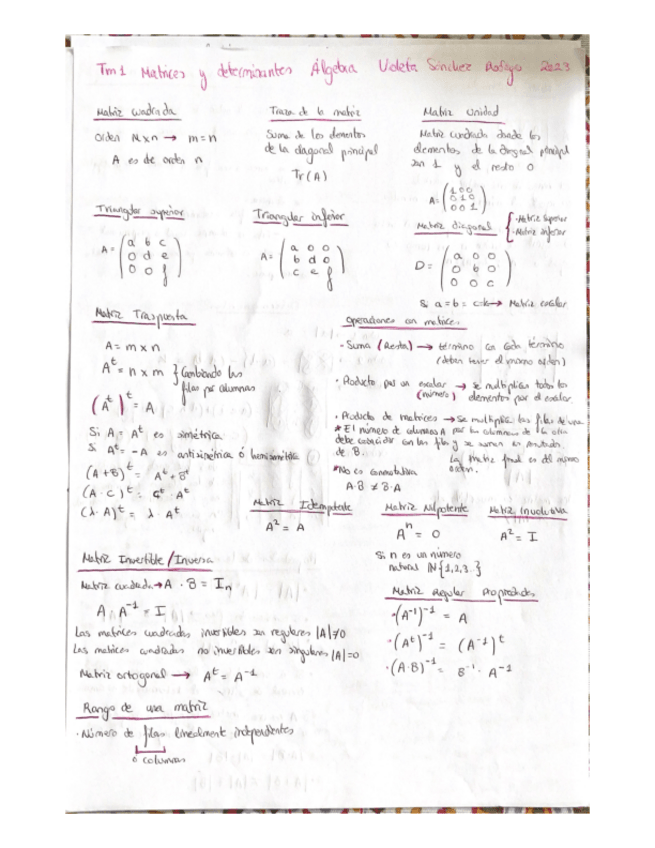 Tm1 Matrices y determinantes Álgebra Violeta Sánchez 2023
Matriz cuadrada
orden N x n → m = n
A es de orden n
Traza de la matriz
Suma de los elementos
de la diagonal principal
Tr (A)
Matriz Unidad
Matriz cuadrada donde los
elementos de la diagonal principal
son 1 y el resto 0
A = ( 1 0 0
0 1 0
0 0 1 )
Triangular superior
A = ( a b c
0 d e
0 0 f )
Triangular inferior
A = ( a 0 0
b d 0
c e f )
Matriz diagonal { · Matriz superior
· Matriz inferior
D = ( a 0 0
0 b 0
0 0 c )
Si a = b = c → Matriz escalar
Matriz Traspuesta
A = m x n
A^t = n x m } Cambiando las
filas por columnas
(A^t)^t = A
Si A = A^t es simétrica
Si A^t = -A es antisimétrica ó hemisimétrica
(A + B)^t = A^t + B^t
(A · C)^t = C^t · A^t
(λ · A)^t = λ · A^t
Operaciones con matrices
· Suma (Resta) → término con cada término
(deben tener el mismo orden)
· Producto por un escalar → se multiplican todos los
(número) elementos por el escalar.
· Producto de matrices → Se multiplica las filas de una
* El número de columnas A por las columnas de la otra
debe coincidir con las filas y se suman
de B. La matriz final es del mismo
orden.
* No es conmutativa
A·B ≠ B·A
Matriz Idempotente
A² = A
Matriz Nilpotente
A^n = 0
Si n es un número
natural IN {1,2,3..}
Matriz Involutiva
A² = I
Matriz Invertible / Inversa
Matriz cuadrada → A · B = I_n
A · A^-1 = I
Las matrices cuadradas invertibles son regulares |A| ≠ 0
Las matrices cuadradas no invertibles son singulares |A| = 0
Matriz ortogonal → A^t = A^-1
Matriz Regular Propiedades
· (A^-1)^-1 = A
· (A^t)^-1 = (A^-1)^t
· (A·B)^-1 = B^-1 · A^-1
Rango de una matriz
· Número de filas linealmente independientes
ó columnas